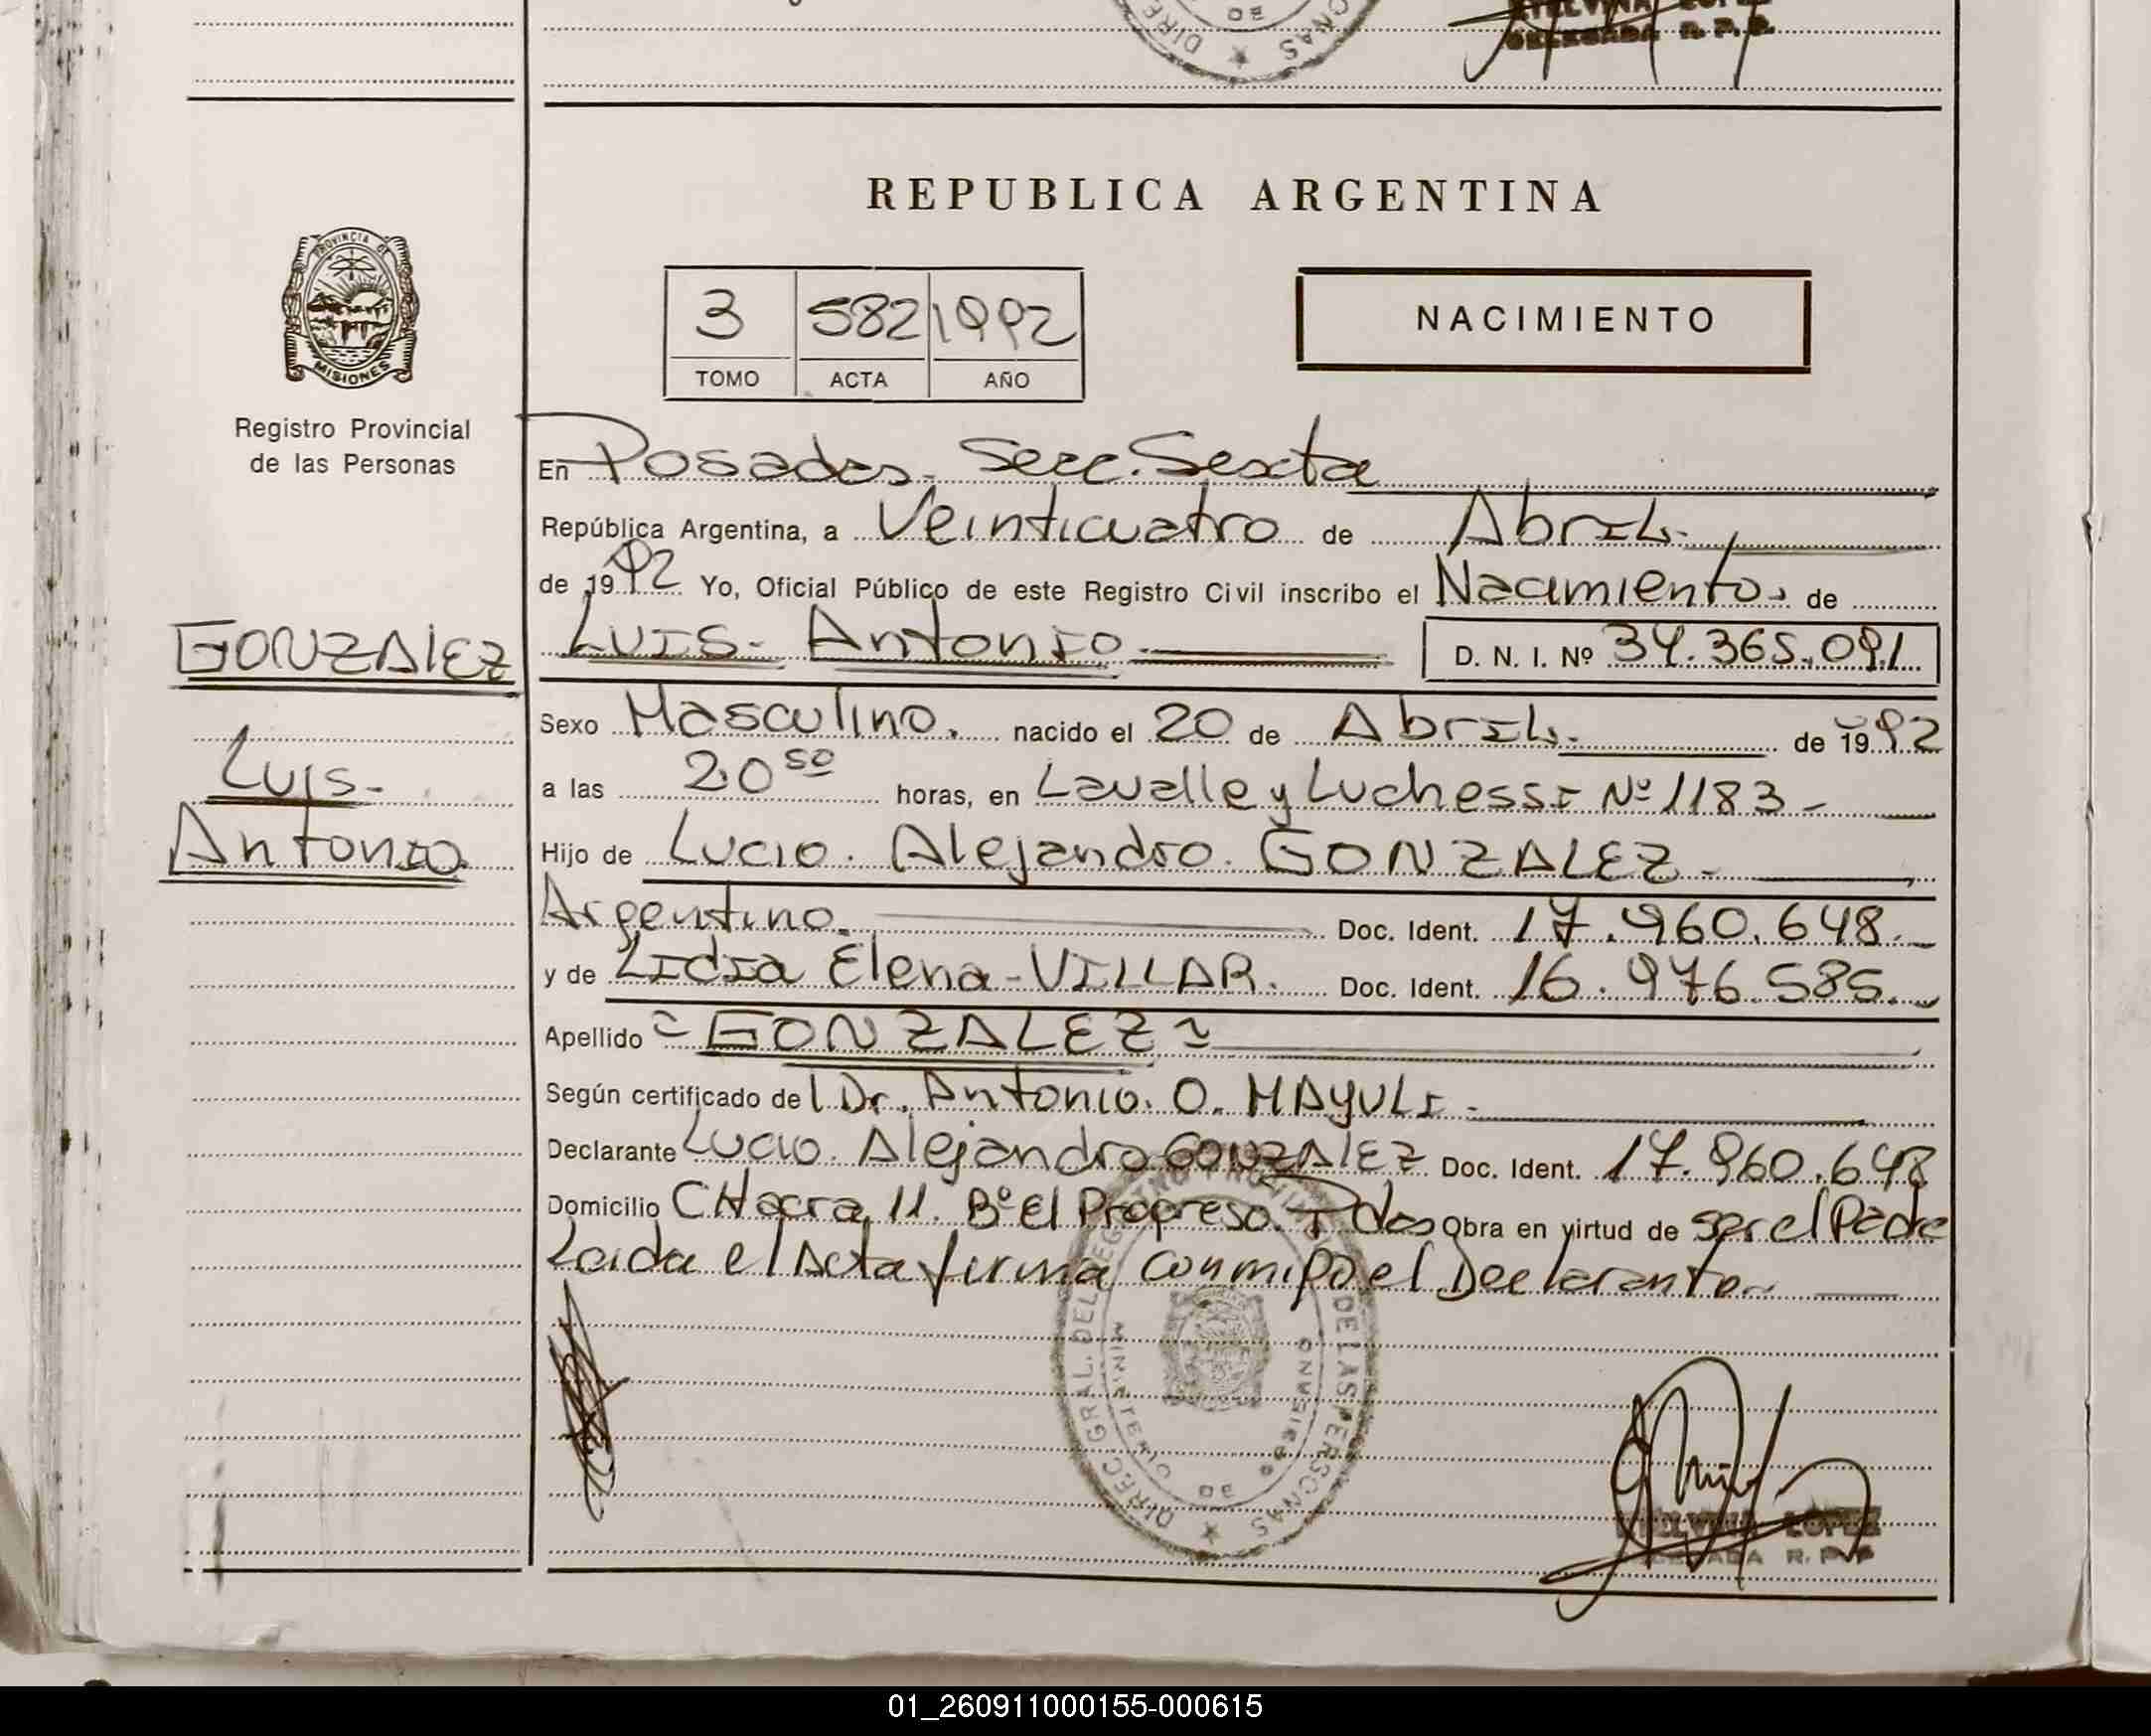 ETELVINA LOPEZ
DELEGADA R. P. P.
REPUBLICA ARGENTINA
PROVINCIA DE
MISIONES
Registro Provincial
de las Personas
3 582 1992
TOMO ACTA AÑO
NACIMIENTO
En Posadas. Secc. Sexta
República Argentina, a Veinticuatro de Abril.
de 1992 Yo, Oficial Público de este Registro Civil inscribo el Nacimiento, de
GONZALEZ
Luis. Antonio. D. N. I. Nº 34.365.091
Sexo Masculino. nacido el 20 de Abril. de 1992
Luis.
a las 20 50 horas, en Lavalle y Luchessi Nº 1183 -
Antonio
Hijo de Lucio. Alejandro. GONZALEZ -
Argentino. Doc. Ident. 17.960.648.-
y de Lidia Elena - VILLAR. Doc. Ident. 16.976.585.-
Apellido = GONZALEZ =
Según certificado del Dr. Antonio. O. MAYULI -
Declarante Lucio. Alejandro GONZALEZ Doc. Ident. 17.960.648
Domicilio CHacra 11. Bº El Progreso. Pdas Obra en virtud de ser el Padre
Leida el Acta firma conmigo el Declarante.-
DIREC. GRAL. DEL REGISTRO PROVINCIAL DE LAS PERSONAS
MINISTERIO DE GOBIERNO
ETELVINA LOPEZ
DELEGADA R. P. P.
01_260911000155-000615